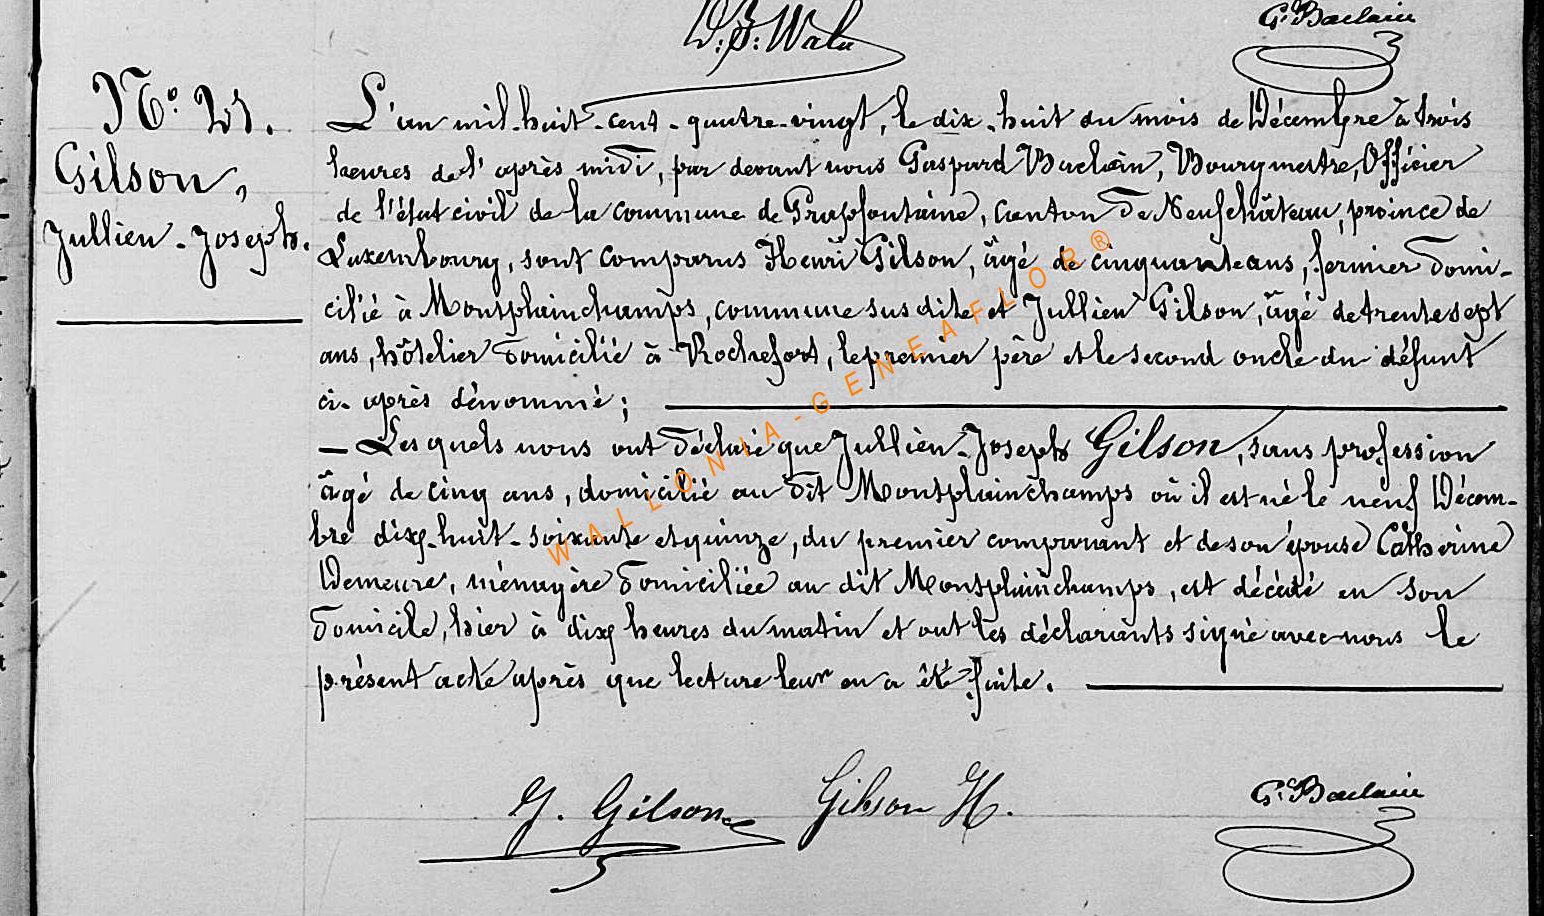 G. Baclain
N° 25.
Gilson,
Jullien-Joseph.
L'an mil-huit-cent-quatre-vingt, le dix-huit du mois de Décembre à trois
heures de l'après midi, par devant nous Gaspard Baclain, Bourgmestre, Officier
de l'état civil de la commune de Grapfontaine, canton de Neufchâteau, province de
Luxembourg, sont comparus Henri Gilson, âgé de cinquante ans, fermier domi-
cilié à Montplainchamps, commune susdite et Jullien Gilson, âgé de trente sept
ans, hôtelier domicilié à Rochefort, le premier père et le second oncle du défunt
ci-après dénommé;
— Les quels nous ont déclaré que Jullien-Joseph Gilson, sans profession
âgé de cinq ans, domicilié au dit Montplainchamps où il est né le neuf Décem-
bre dix-huit-soixante et quinze, du premier comparant et de son épouse Catherine
Demeure, ménagère domiciliée au dit Montplainchamps, est décédé en son
domicile, hier à dix heures du matin et ont les déclarants signé avec nous le
présent acte après que lecture leur en a été faite.
J. Gilson Gilson H. G. Baclain
WALLONIA-GENEAFLOR®